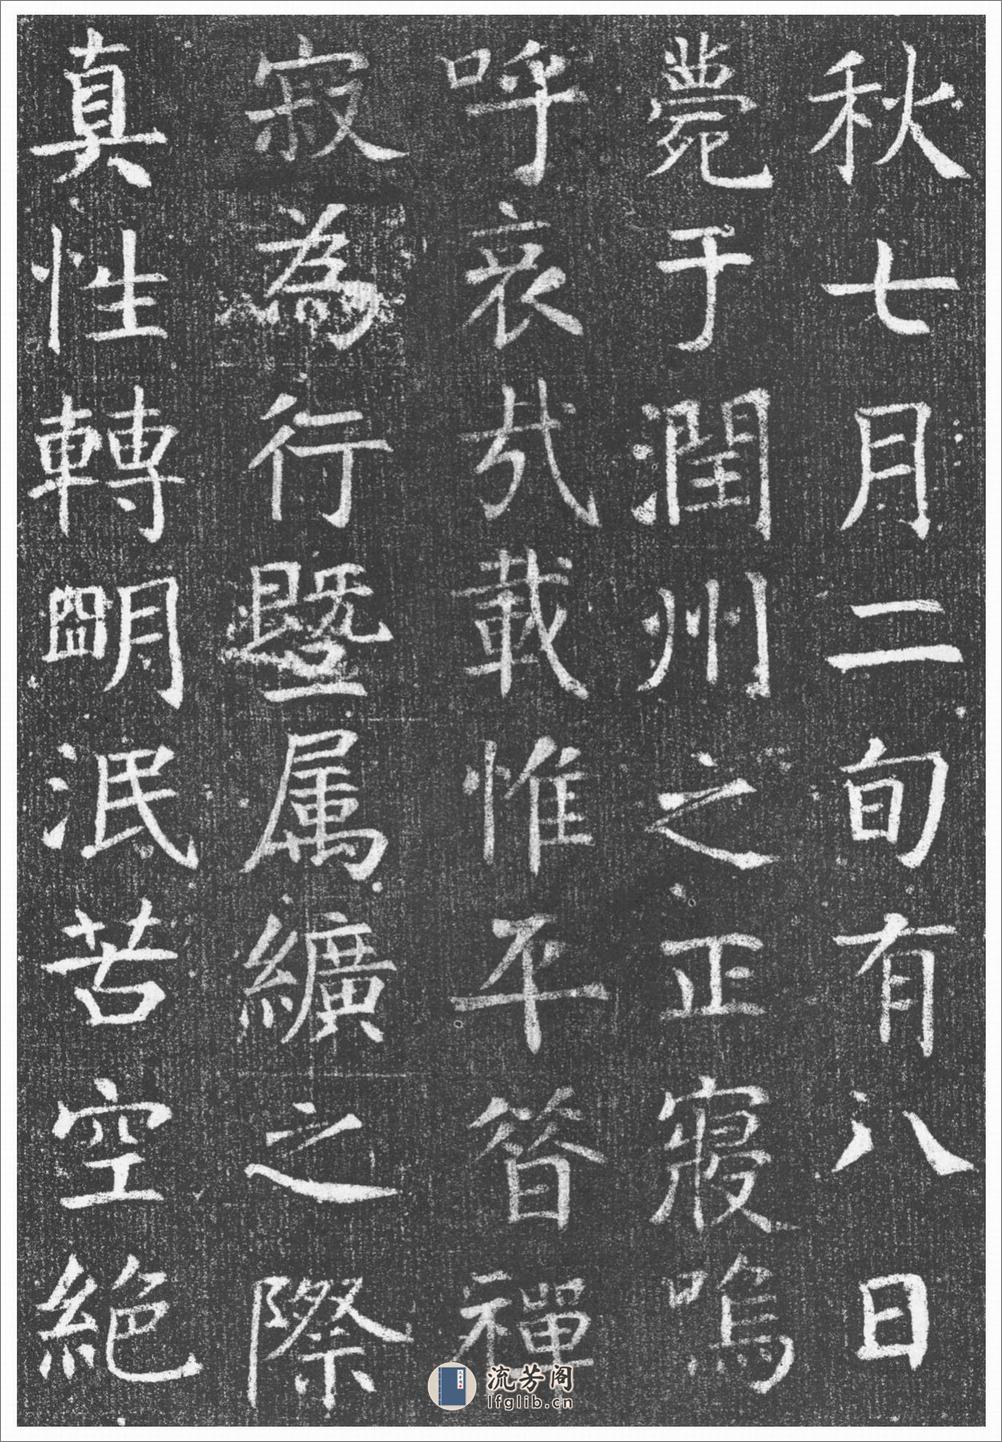 秋七月二旬有八日
薨于潤州之正寢嗚
呼哀哉載惟平昔禪
寂為行暨属纊之際
真性轉朙泯苦空絕
流芳阁
lfglib.cn